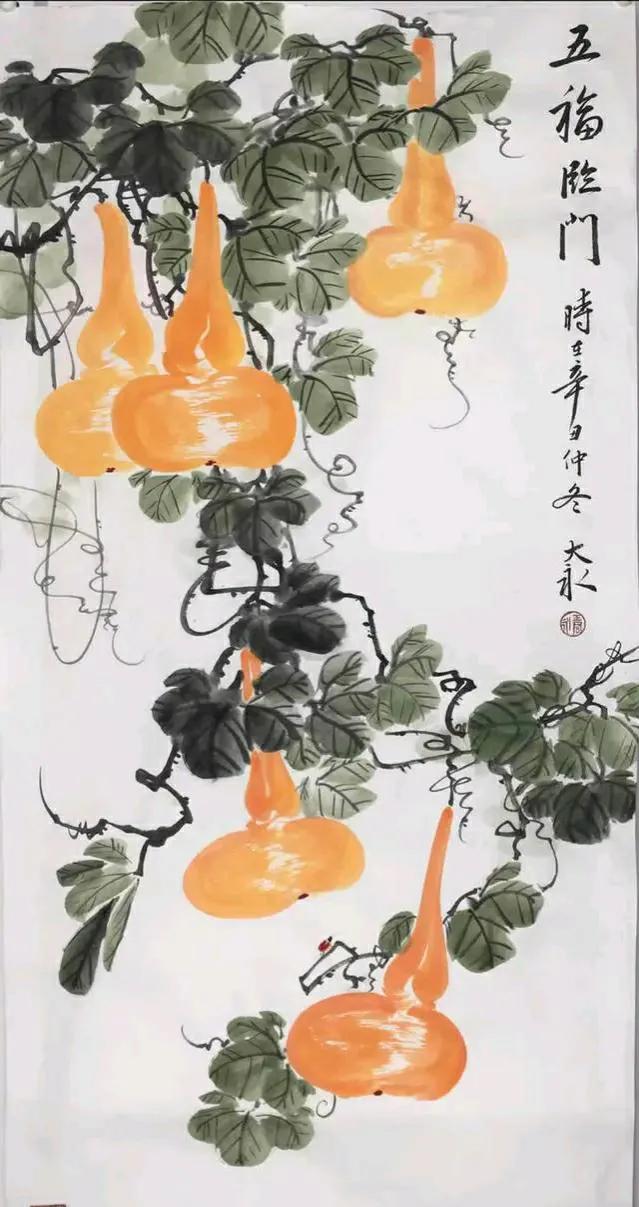 五福臨門 時在辛丑仲冬 大永